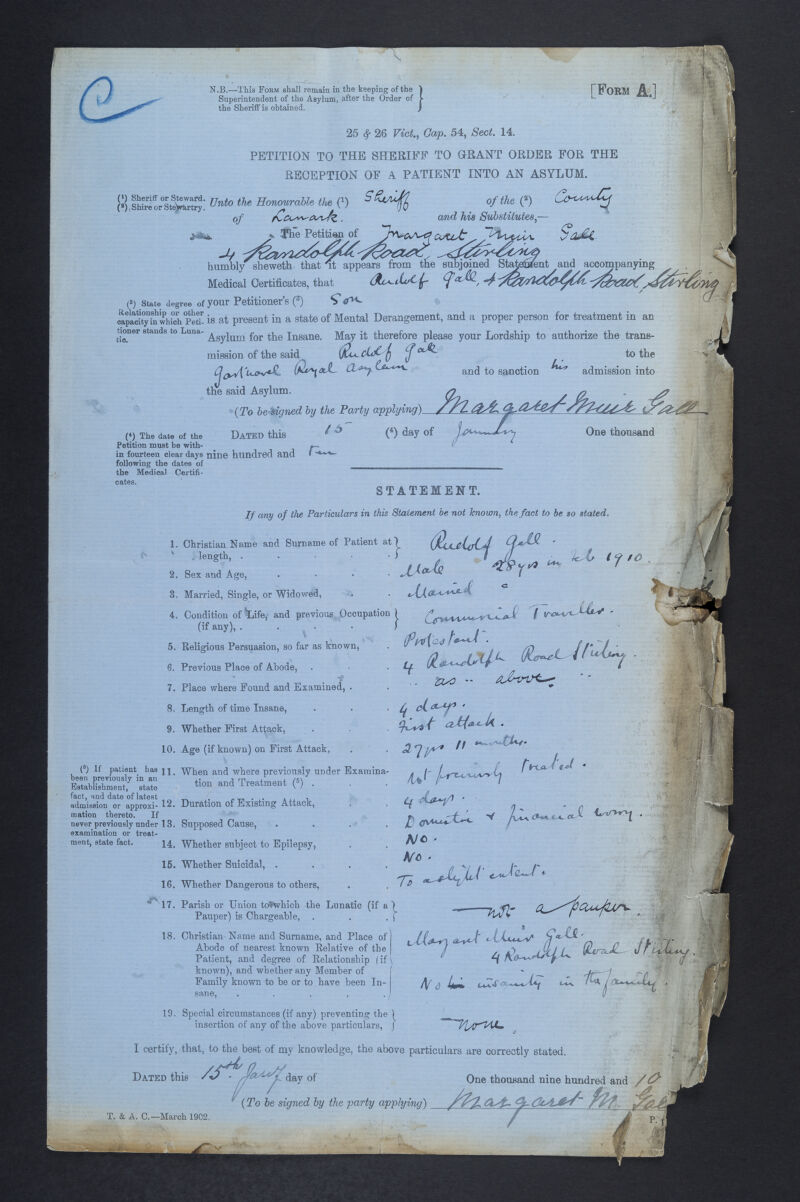 C
N.B.—This Form shall remain in the keeping of the
Superintendent of the Asylum, after the Order of
the Sheriff is obtained.
[Form A.]
25 & 26 Vict., Cap. 54, Sect. 14.
PETITION TO THE SHERIFF TO GRANT ORDER FOR THE
RECEPTION OF A PATIENT INTO AN ASYLUM.
(1) Sheriff or Steward.
(2) Shire or Stewartry.
Unto the Honourable the (1) Sheriff of the (2) County
of Lanark. and his Substitutes,—
The Petition of Margaret Muir Gall
4 Randolph Road, Stirling
humbly sheweth that it appears from the subjoined Statement and accompanying
Medical Certificates, that Rudolf Gall, 4 Randolph Road, Stirling
(3) State degree of
Relationship or other
capacity in which Peti-
tioner stands to Luna-
tic.
your Petitioner's (3) Son
is at present in a state of Mental Derangement, and a proper person for treatment in an
Asylum for the Insane. May it therefore please your Lordship to authorize the trans-
mission of the said Rudolf Gall to the
Gartnavel Royal Asylum and to sanction his admission into
the said Asylum.
(To be signed by the Party applying) Margaret Muir Gall
(4) The date of the
Petition must be with-
in fourteen clear days
following the dates of
the Medical Certifi-
cates.
Dated this 15 (4) day of January One thousand
nine hundred and Ten
STATEMENT.
If any of the Particulars in this Statement be not known, the fact to be so stated.
1. Christian Name and Surname of Patient at
length, . Rudolf Gall.
2. Sex and Age, Male 28 yrs in Feb 1910.
3. Married, Single, or Widowed, Married
4. Condition of Life, and previous Occupation
(if any), . Commercial Traveller.
5. Religious Persuasion, so far as known, Protestant.
6. Previous Place of Abode, 4 Randolph Road Stirling.
7. Place where Found and Examined, . " as " above. "
8. Length of time Insane, 4 days.
9. Whether First Attack, First attack.
10. Age (if known) on First Attack, 27 yrs 11 months.
(5) If patient has
been previously in an
Establishment, state
fact, and date of latest
admission or approxi-
mation thereto. If
never previously under
examination or treat-
ment, state fact.
11. When and where previously under Examina-
tion and Treatment (5) . Not previously treated.
12. Duration of Existing Attack, 4 days.
13. Supposed Cause, Domestic & financial worry.
14. Whether subject to Epilepsy, No.
15. Whether Suicidal, . No.
16. Whether Dangerous to others, To a slight extent.
17. Parish or Union to which the Lunatic (if a
Pauper) is Chargeable, — not a pauper.
18. Christian Name and Surname, and Place of
Abode of nearest known Relative of the
Patient, and degree of Relationship (if
known), and whether any Member of
Family known to be or to have been In-
sane,
Margaret Muir Gall.
4 Randolph Road Stirling.
No insanity in the family.
19. Special circumstances (if any) preventing the
insertion of any of the above particulars, — none.
I certify, that, to the best of my knowledge, the above particulars are correctly stated.
Dated this 15th Jany day of One thousand nine hundred and 10
(To be signed by the party applying) Margaret M. Gall
T. & A. C.—March 1902.
P.